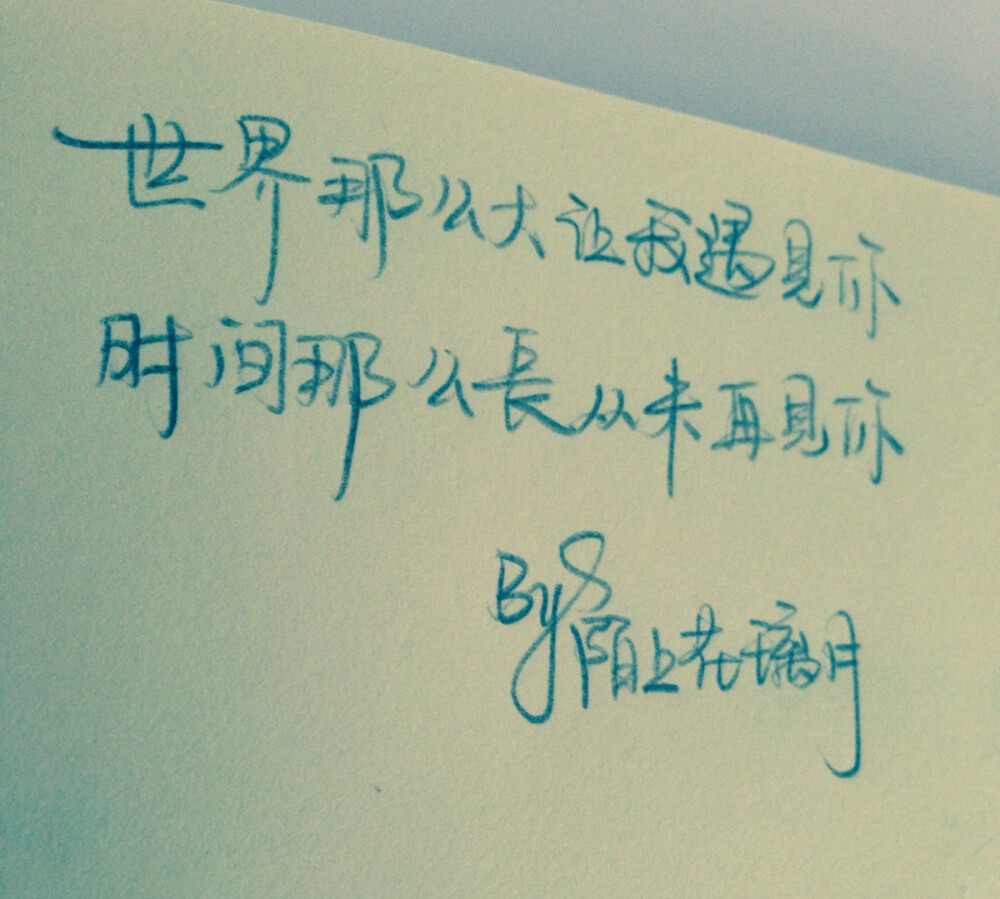 世界那么大让我遇见你
时间那么長从未再见你
By 陌上花璃月